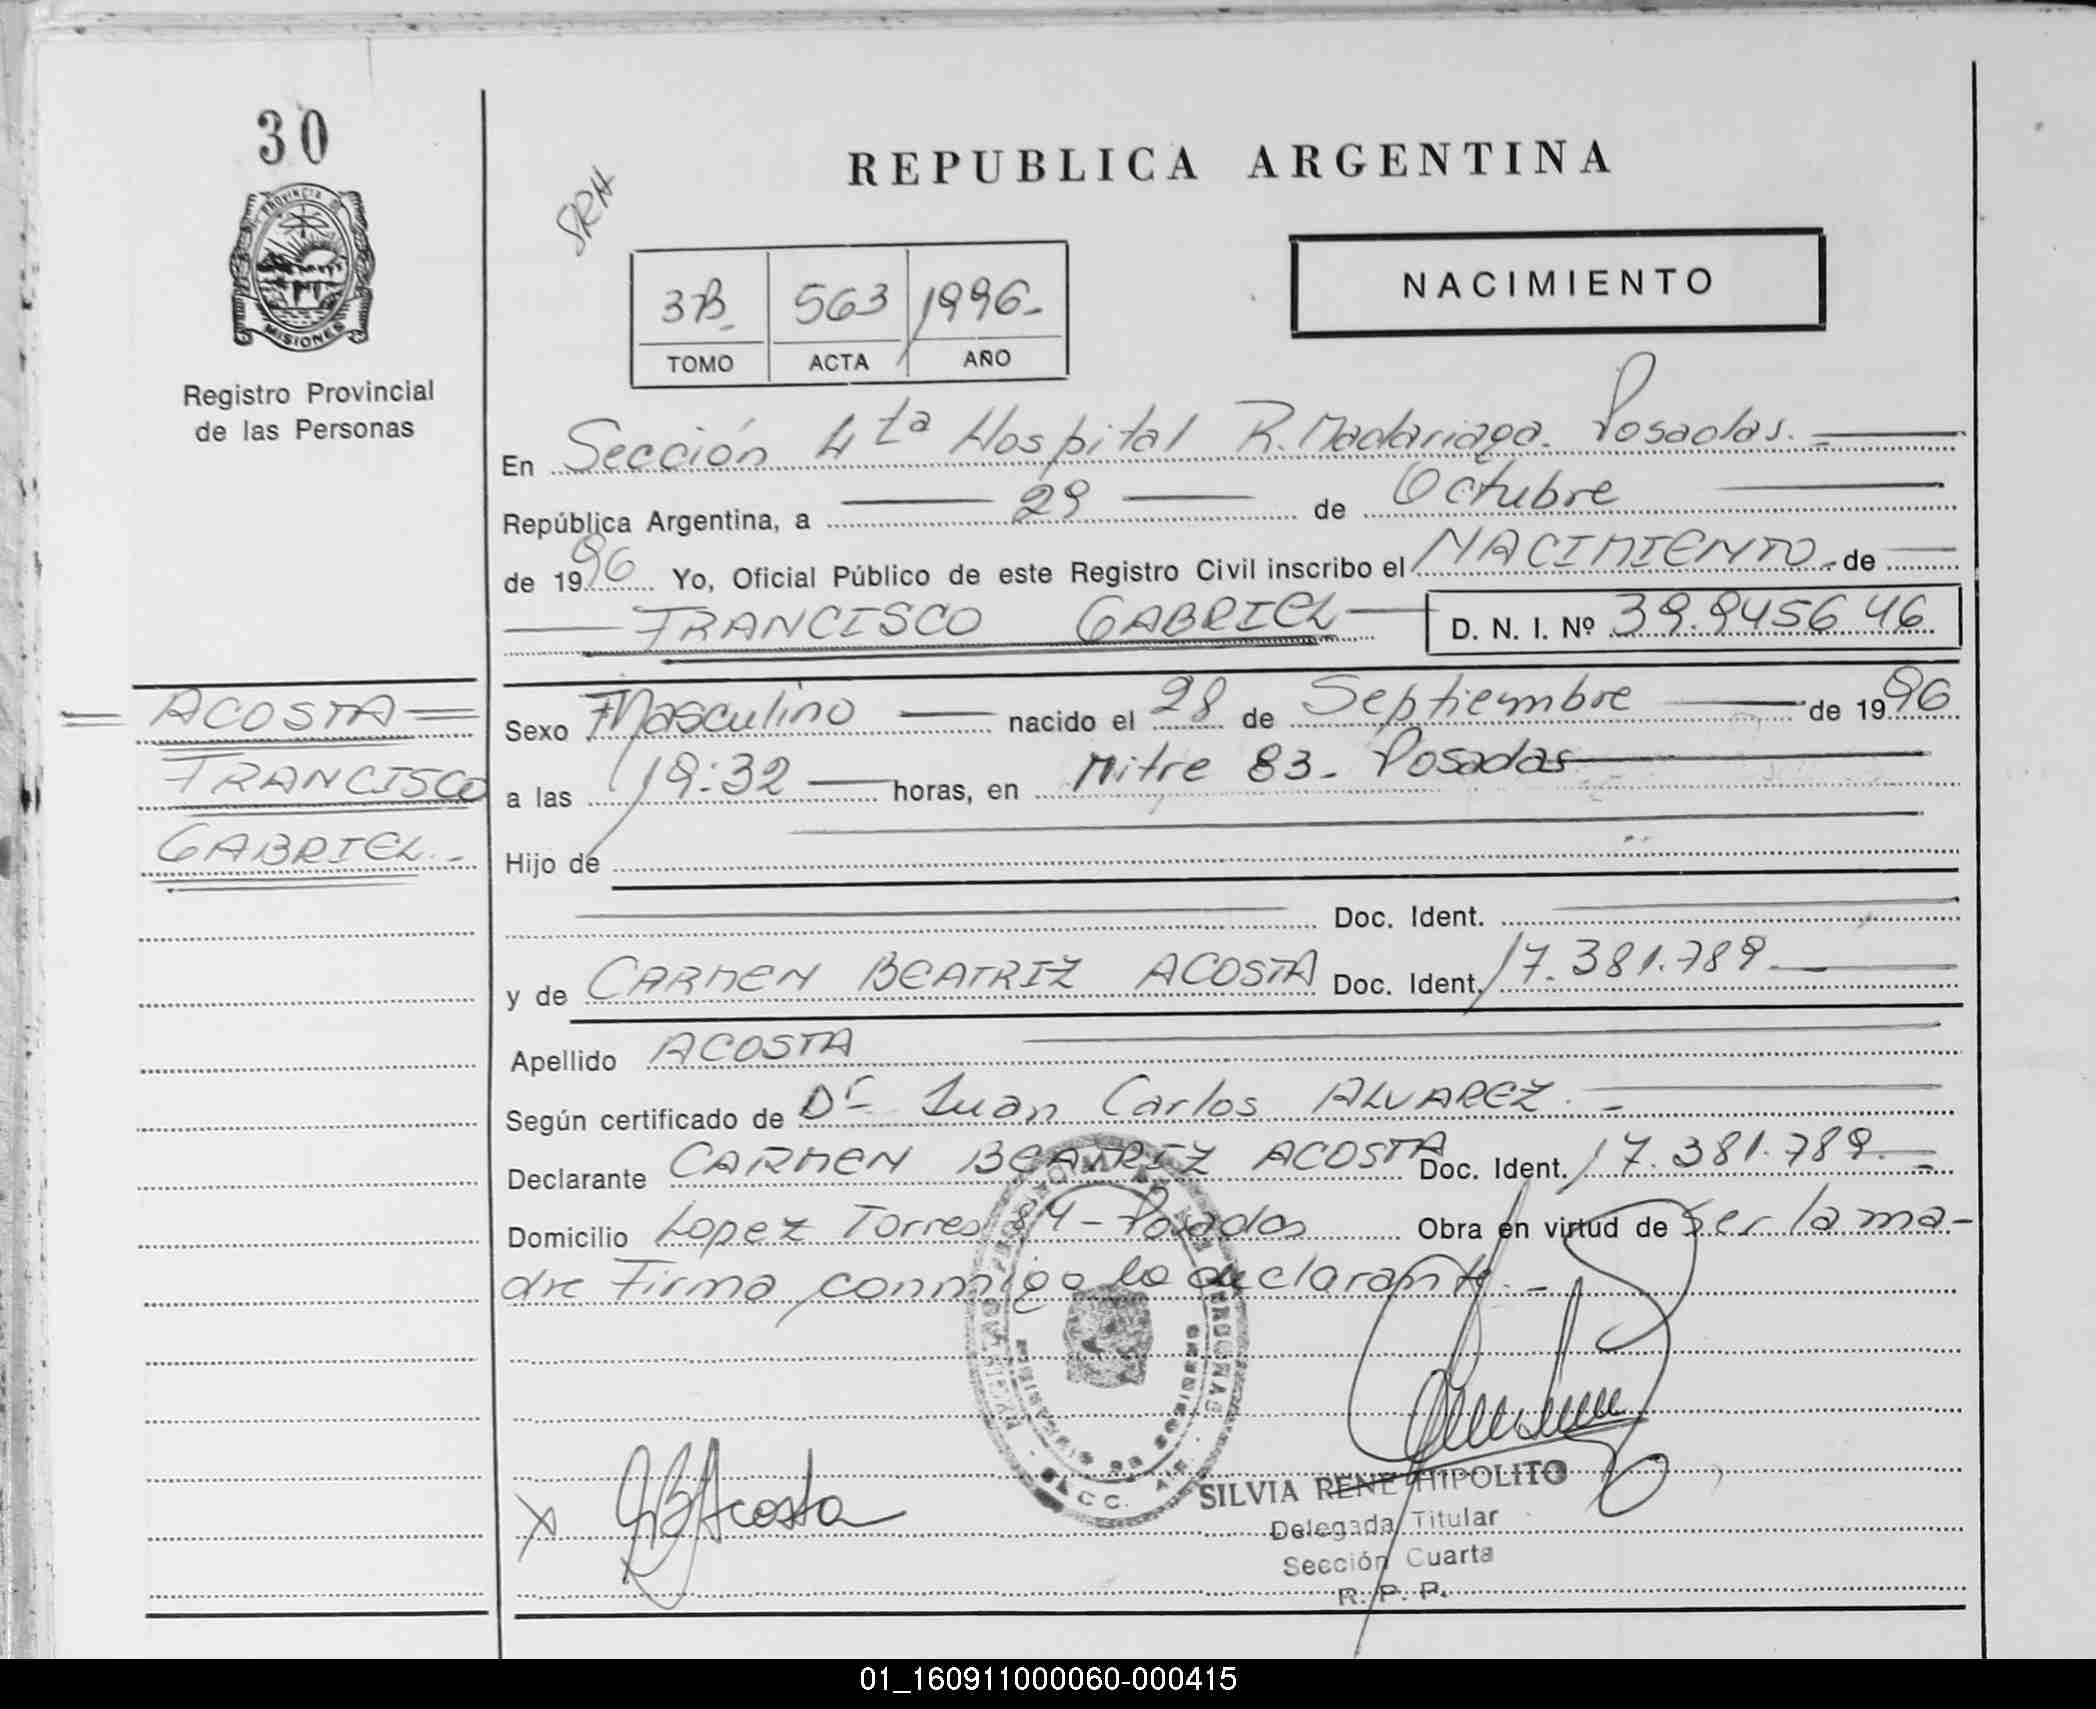 30
PROVINCIA DE
MISIONES
Registro Provincial
de las Personas
SRH
REPUBLICA ARGENTINA
NACIMIENTO
3B 563 1996
TOMO ACTA AÑO
En Sección 4ta Hospital R. Madariaga. Posadas.
República Argentina, a 29 de Octubre
de 1996 Yo, Oficial Público de este Registro Civil inscribo el NACIMIENTO de
FRANCISCO GABRIEL D. N. I. Nº 39.945646
ACOSTA
FRANCISCO
GABRIEL.
Sexo Masculino nacido el 28 de Septiembre de 1996
a las 19:32 horas, en Mitre 83. Posadas
Hijo de
Doc. Ident.
y de CARMEN BEATRIZ ACOSTA Doc. Ident. 17.381.789
Apellido ACOSTA
Según certificado de Dr Juan Carlos ALVAREZ.
Declarante CARMEN BEATRIZ ACOSTA Doc. Ident. 17.381.789.
Domicilio Lopez Torres 84 - Posadas Obra en virtud de ser la ma-
dre Firma conmigo la declarante.
X CBAcosta
SILVIA RENE HIPOLITO
Delegada Titular
Sección Cuarta
R. P. P.
01_160911000060-000415